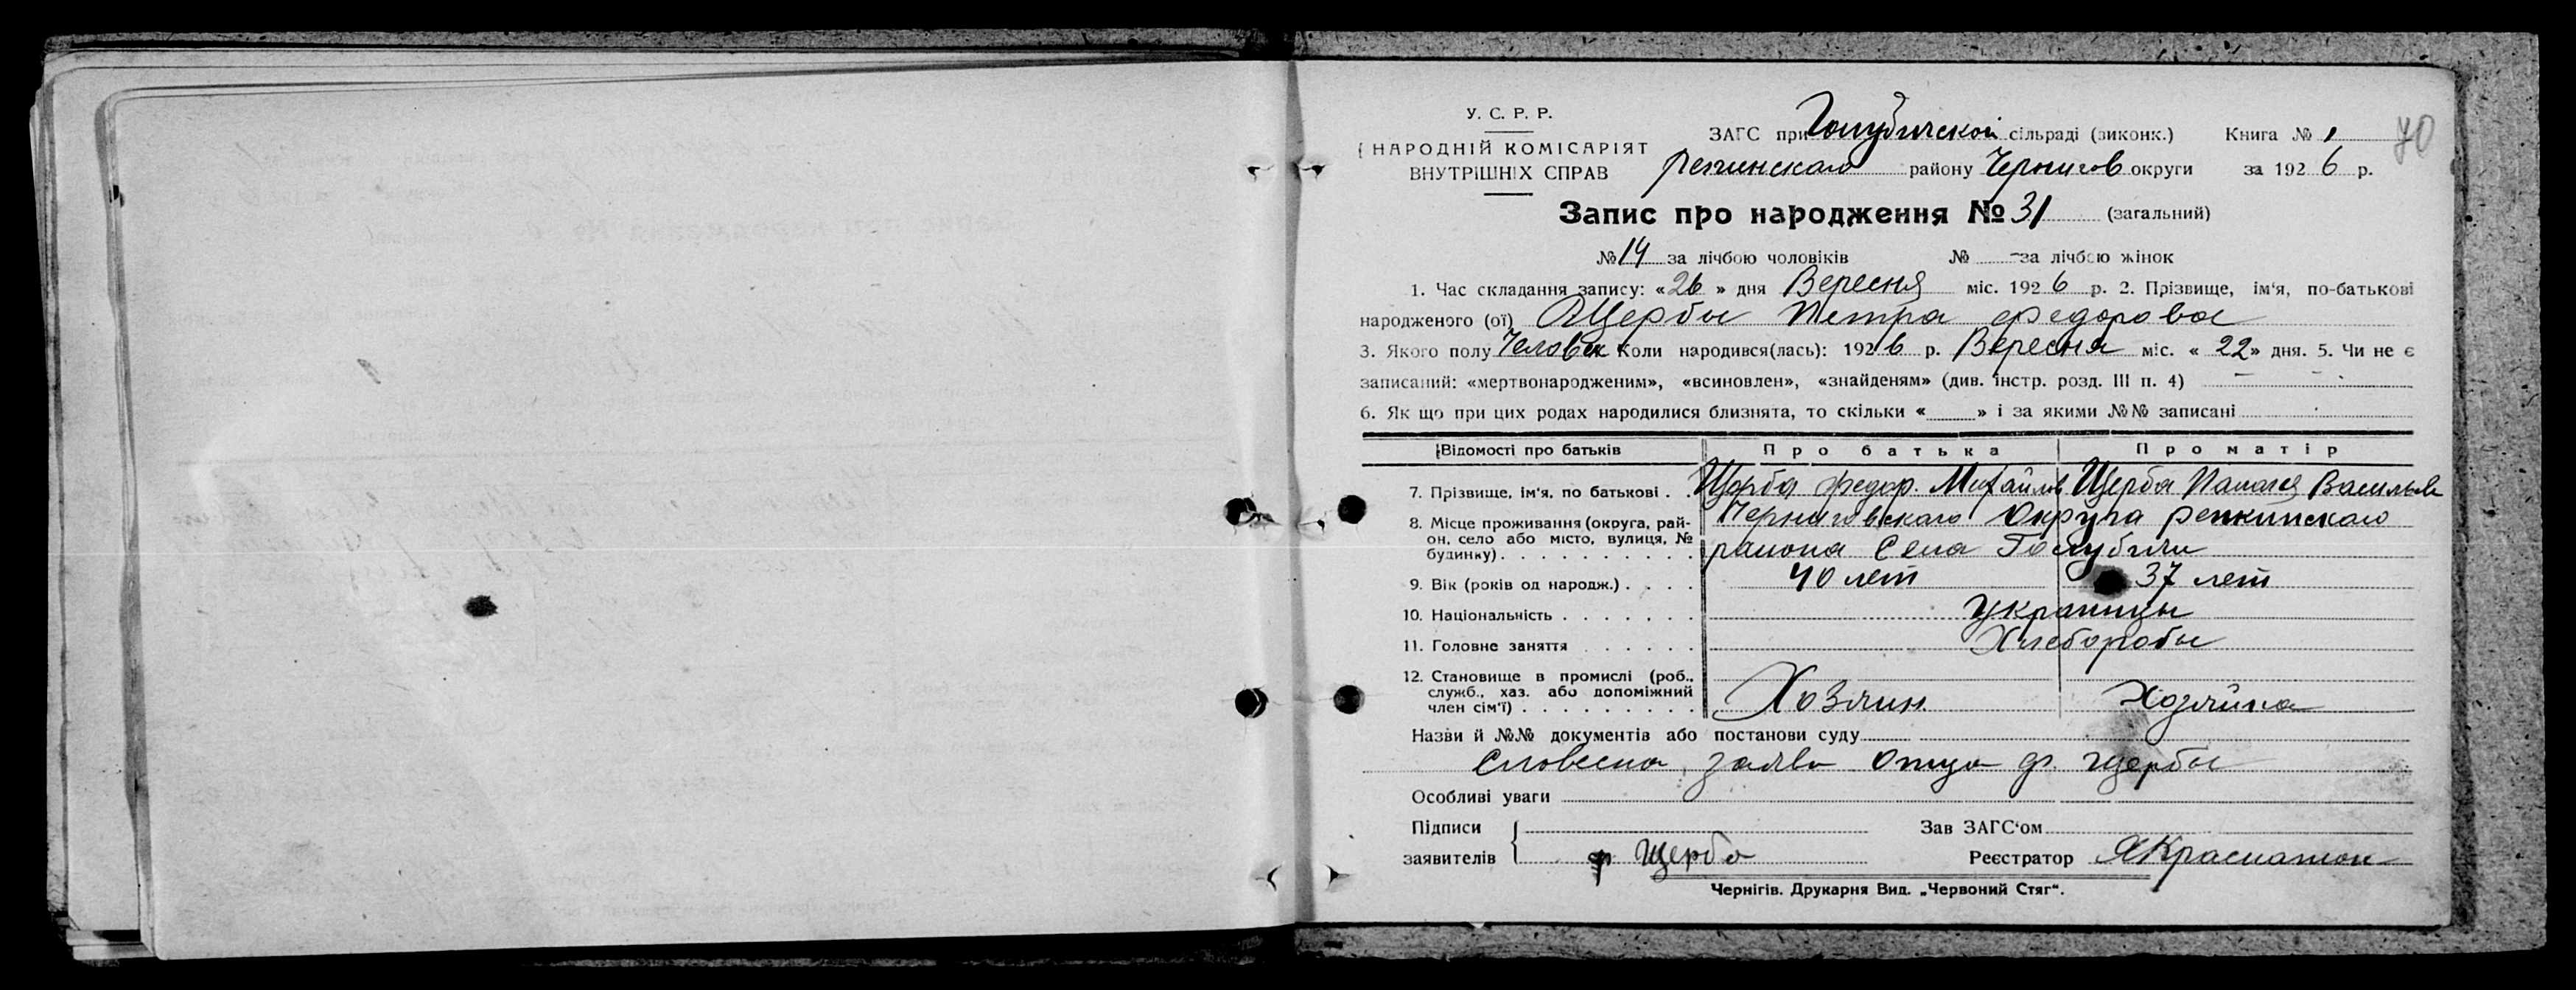 У. С. Р. Р.
НАРОДНІЙ КОМІСАРІЯТ
ВНУТРІШНІХ СПРАВ
ЗАГС при Голубичской сільраді (виконк.) Книга № 1 70
Репкинскаго району Чернигов округи за 1926 р.
Запис про народження № 31 (загальний)
№ 14 за лічбою чоловіків № - за лічбою жінок
1. Час складання запису: «26» дня Вересня міс. 1926 р. 2. Прізвище, ім'я, по-батькові
народженого (ої) Щербы Петра Федорова
3. Якого полу Человек Коли народився(лась): 1926 р. Вересня міс. «22» дня. 5. Чи не є
записаний: «мертвонародженим», «всиновлен», «знайденям» (див. інстр. розд. III п. 4) —
6. Як що при цих родах народилися близнята, то скільки « » і за якими №№ записані
Відомості про батьків Про батька Про матір
7. Прізвище, ім'я, по батькові . . Щерба Федор. Михайлов Щерба Васильев
8. Місце проживання (округа, рай- Черниговскаго Округа репкинскаго
он, село або місто, вулиця, № будинку) . . . района Села Голубичи
9. Вік (років од народж.) . . . . 40 лет 37 лет
10. Національність . . . . . . . украинцы
11. Головне заняття . . . . . . Хлеборобы
12. Становище в промислі (роб.,
служб., хаз. або допоміжний
член сім'ї) . . . . . . . . . Хозяин. Хозяйка
Назви й №№ документів або постанови суду
Словесна заява Отца ф. Щербы
Особливі уваги
Підписи Зав ЗАГС'ом
заявителів ф Щерба Реєстратор
Чернігів. Друкарня Вид. „Червоний Стяг“.